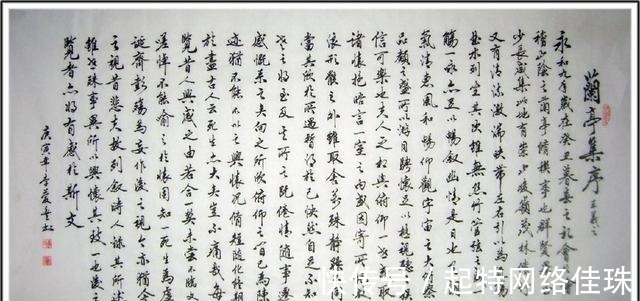 蘭亭集序 王羲之
永和九年歲在癸丑暮春之初會
稽山陰之蘭亭修禊事也群賢
少長咸集此地有崇山峻嶺茂林修
又有清流激湍映帶左右引以為
曲水列坐其次雖無絲竹管弦
觴一詠亦足以暢敘幽情是日也
氣清惠風和暢仰觀宇宙之大
品類之盛所以游目騁懷足以極視聽
信可樂也夫人之相與俯仰一
諸懷抱晤言一室之內或因寄所
浪形骸之外雖取舍萬殊靜躁
當其欣於所遇暫得於己快然自足不知
老之將至及其所之既倦情隨事遷
感慨系之矣向之所欣俯仰之間已為陳
迹猶不能不以之興懷況修短隨化終期
於盡古人云死生亦大矣豈不痛哉每
覽昔人興感之由若合一契未嘗不臨文
嗟悼不能喻之於懷固知一死生為虛
誕齊彭殤為妄作後之視今亦猶今
之視昔悲夫故列敘時人錄其所述
雖世殊事異所以興懷其致一也後之
覽者亦將有感於斯文
庚寅年李
快传号／起特网络佳珠